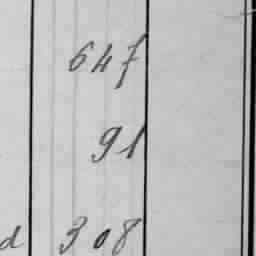 647
91
d 308